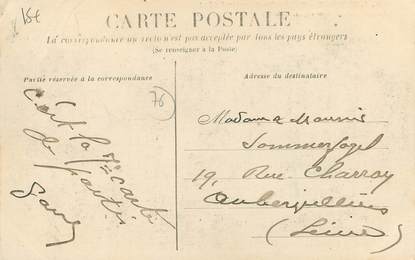 15€
CARTE POSTALE
La correspondance au recto n'est pas acceptée par tous les pays étrangers
(Se renseigner à la Poste)
Partie réservée à la correspondance
Adresse du destinataire
76
C'est la
carte
de
Madame Maurice
19, Rue Charron
Aubervilliers
(Seine)